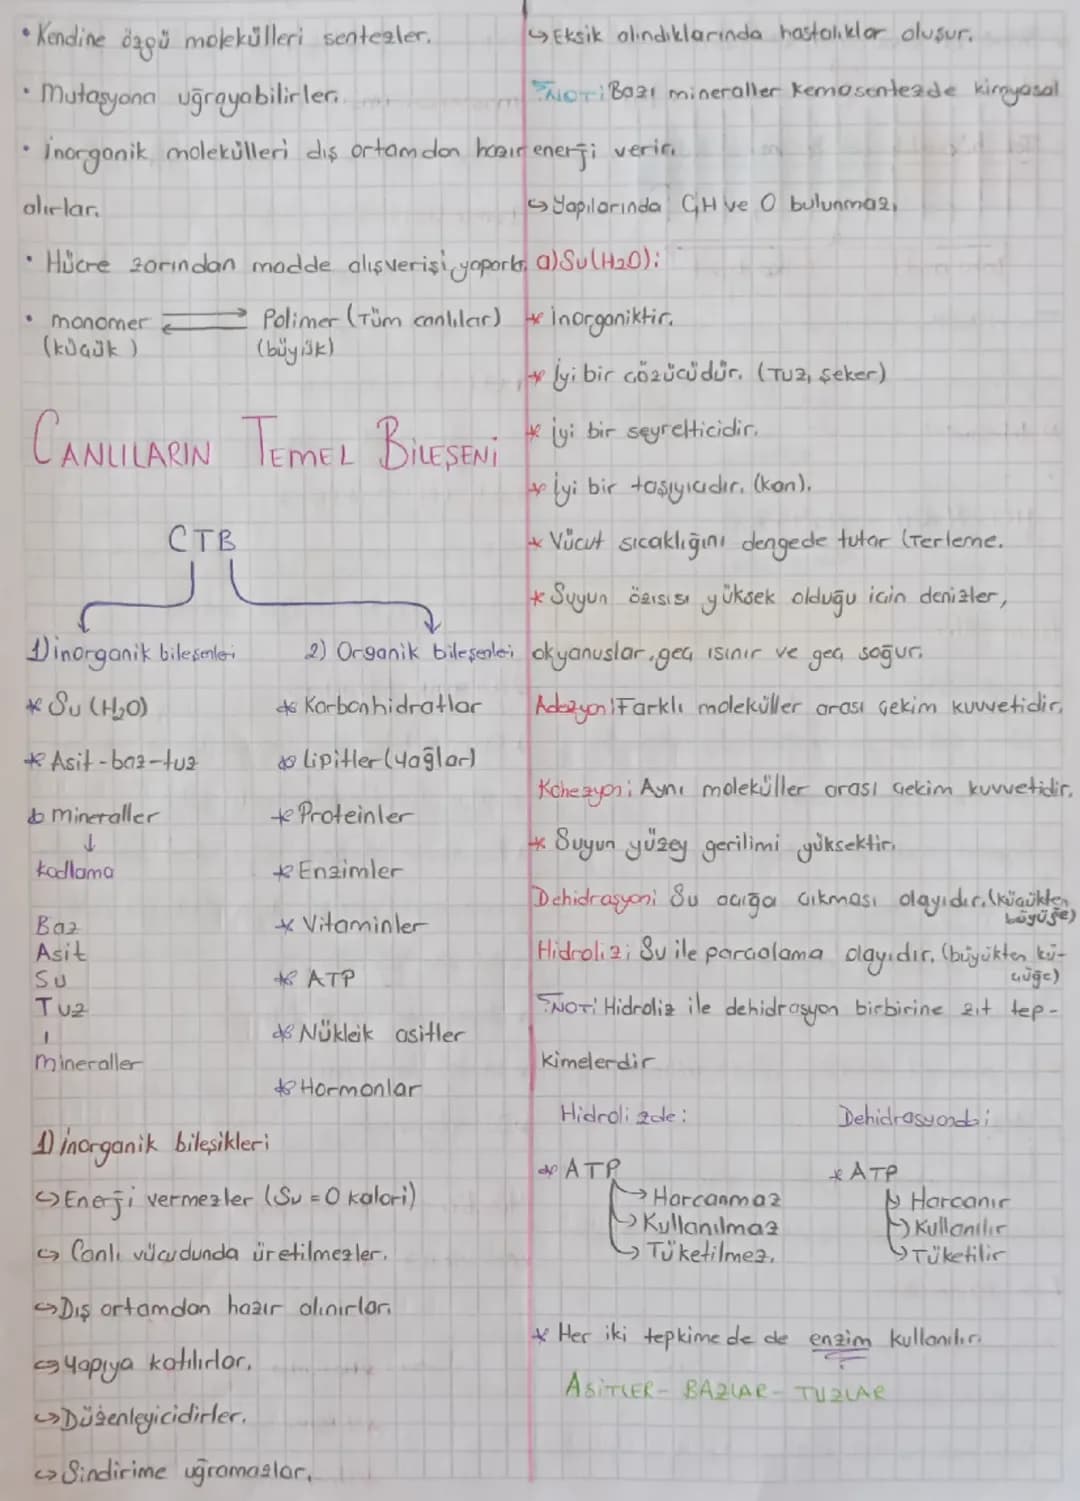 • Kendine özgü molekülleri sentezler.
• Mutasyona uğrayabilirler.
• İnorganik molekülleri dış ortamdan hazır
alırlar.
• Hücre zarından madde alışverişi yaparlar
• monomer ⇌ Polimer (Tüm canlılar)
(küçük) (büyük)
CANLILARIN TEMEL BİLEŞENİ
CTB
1) inorganik bileşenleri
* Su (H₂O)
* Asit-baz-tuz
* mineraller
↓
kodlama
Baz
Asit
Su
Tuz
ı
mineraller
2) Organik bileşenleri
* Karbonhidratlar
* Lipitler (Yağlar)
* Proteinler
* Enzimler
* Vitaminler
* ATP
* Nükleik asitler
* Hormonlar
1) inorganik bileşikleri
↪ Enerji vermezler (Su = 0 kalori)
↪ Canlı vücudunda üretilmezler.
↪ Dış ortamdan hazır alınırlar.
↪ Yapıya katılırlar.
↪ Düzenleyicidirler.
↪ Sindirime uğramazlar.
↪ Eksik alındıklarında hastalıklar oluşur.
NOT: Bazı mineraller kemosentezde kimyasal
enerji verir.
↪ Yapılarında C,H ve O bulunmaz.
a) Su (H₂O):
* inorganiktir.
* İyi bir çözücüdür. (Tuz, şeker)
* İyi bir seyrelticidir.
* İyi bir taşıyıcıdır. (kan).
* Vücut sıcaklığını dengede tutar (Terleme.
* Suyun özısısı yüksek olduğu için denizler,
okyanuslar, geç ısınır ve geç soğur.
Adezyon: Farklı moleküller arası çekim kuvvetidir.
Kohezyon: Aynı moleküller arası çekim kuvvetidir.
* Suyun yüzey gerilimi yüksektir.
Dehidrasyon: Su açığa çıkması olayıdır. (küçükten
büyüğe)
Hidroliz: Su ile parçalama olayıdır. (büyükten kü-
çüğe)
NOT: Hidroliz ile dehidrasyon birbirine zıt tep-
kimelerdir
Hidrolizde:
* ATP
↪ Harcanmaz
↪ Kullanılmaz
↪ Tüketilmez.
Dehidrasyonda:
* ATP
↪ Harcanır
↪ Kullanılır
↪ Tüketilir
* Her iki tepkimede de enzim kullanılır.
ASİTLER - BAZLAR - TUZLAR